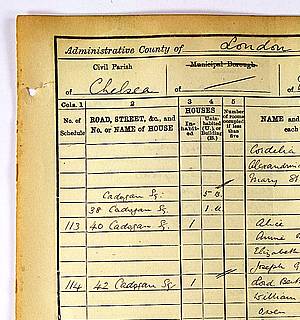 Administrative County of London
Civil Parish
Municipal Borough
of Chelsea of
Cols. 1 2 3 4 5
No. of Schedule
ROAD, STREET, &c., and No. or NAME of HOUSE
HOUSES
In-habit-ed
Unin-habited (U.) or Building (B.)
Number of rooms occupied if less than five
NAME and
each
Cordelia
Alexandrina
Mary
Cadogan Sq.
38 Cadogan Sq. 1 u
113 40 Cadogan Sq. 1 Alice
Annie
Elizabeth
Joseph
114 42 Cadogan Sq 1
William
Owen